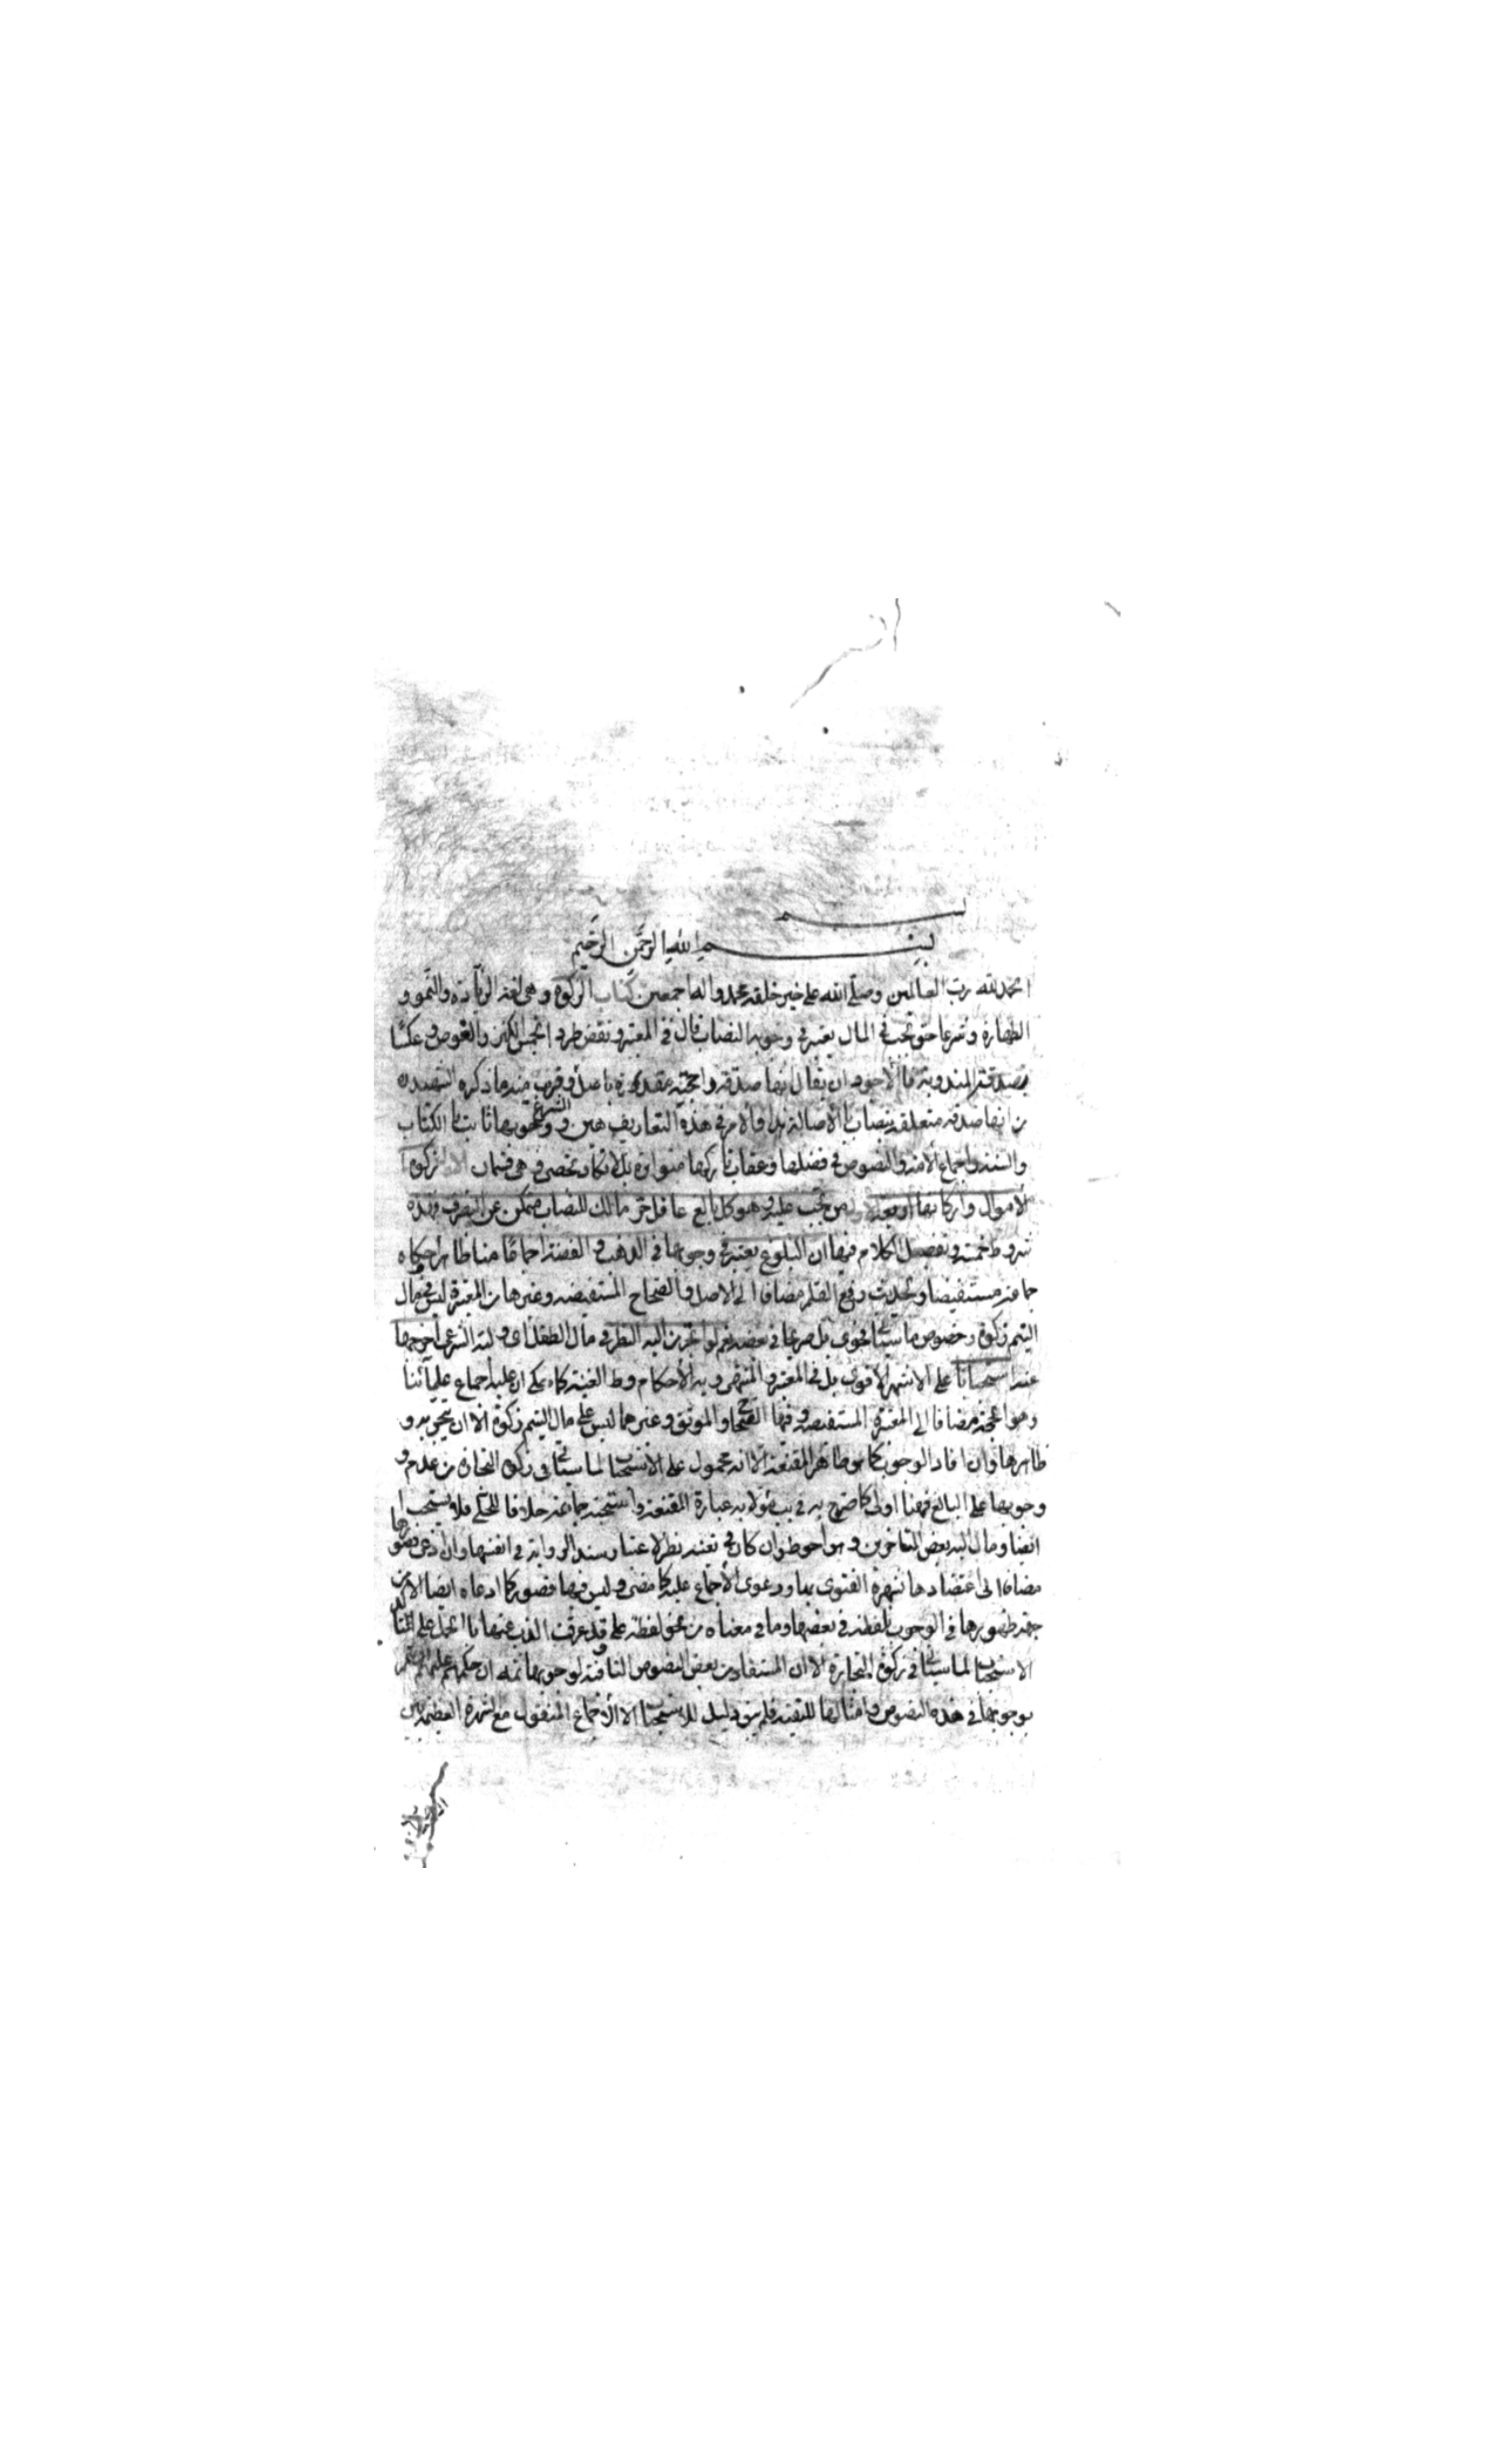 بسم
بسم الله الرحمن الرحيم
الحمد لله رب العالمين وصلى الله على خير خلقه محمد واله اجمعين كتاب الزكوة وهي لغة الزيادة والنمو و
الطهارة وشرعا حق يجب في المال يعتبر في وجوبه النصاب قال في المعتبر ونقض طرد الخمس الكنز والغوص وعكسا
المندوبة فالاجود ان يقال انها صدقة بالاصل وقريب منه ما ذكره الشهيد ره
من انها صدقة متعلقة بنصاب بالاصالة والامر في هذه التعاريف هين ووجوبها الشرعي ثابت بالكتاب
والسنة واجماع الامة والنصوص في فضلها وعقاب تاركها متواترة بل لا تكاد تحصى وهي قسمان الاول زكوة
الاموال واركانها اربعة الاول من تجب عليه وهو كل بالغ عاقل حر مالك للنصاب متمكن من التصرف فهذه
شروط خمسة وتفصيل الكلام فيها ان البلوغ يعتبر في وجوبها في الذهب والفضة اجماعا منا ظاهرا حكاه
جماعة مستفيضا ولحديث رفع القلم مضافا الى الاصل والصحاح المستفيضة وغيرها من المعتبرة ليس في مال
اليتيم زكوة وخصوص ما سيأتي فحوى بل صريحا في بعضه نعم لو اتجر من اليه النظر في مال الطفل اى وليه الشرعي اخرجها
عنه استحبابا على الاشهر الاقوى بل في المعتبر والمنتهى ونهاية الأحكام وظ الغنية كما يحكى ان عليه اجماع علمآئنا
وهو الحجة مضافا الى المعتبرة المستفيضة وفيها الصحيح والموثق وغيرهما ليس على مال اليتيم زكوة الا ان يتجر به و
ظاهرها وان افاد الوجوب كما هو ظاهر المقنعة الا انه محمول على الاستحباب لما سيأتي في زكوة التجارة من عدم
وجوبها على البالغ فهنا اولى كما صرح به في يب مؤلا به عبارة المقنعة واستحبه جماعة خلافا للحلي فلا يستحب
ايضا ومال اليه بعض المتاخرين وهو احوط وان كان في تعينه نظر لاعتبار سند الرواية في انفسها وان ادعى قصورها
مضافا الى اعتضادها بشهرة الفتوى بها ودعوى الأجماع عليه كما مضى وليس فيها قصور كما ادعاه ايضا الا من
جهة ظهورها في الوجوب بلفظه في بعضها وما في معناه من نحو لفظة على وقد عرفت الذب عنها بالحمل على
الاستحباب لما سيأتي في زكوة التجارة الا ان المستفاد من بعض النصوص النافية لوجوبها ثمه ان حكمهم عليهم السلام
بوجوبها في هذه النصوص وامثالها للتقية فلم يبق دليل للاستحباب الا الاجماع المنقول مع الشهرة العظيمة بين